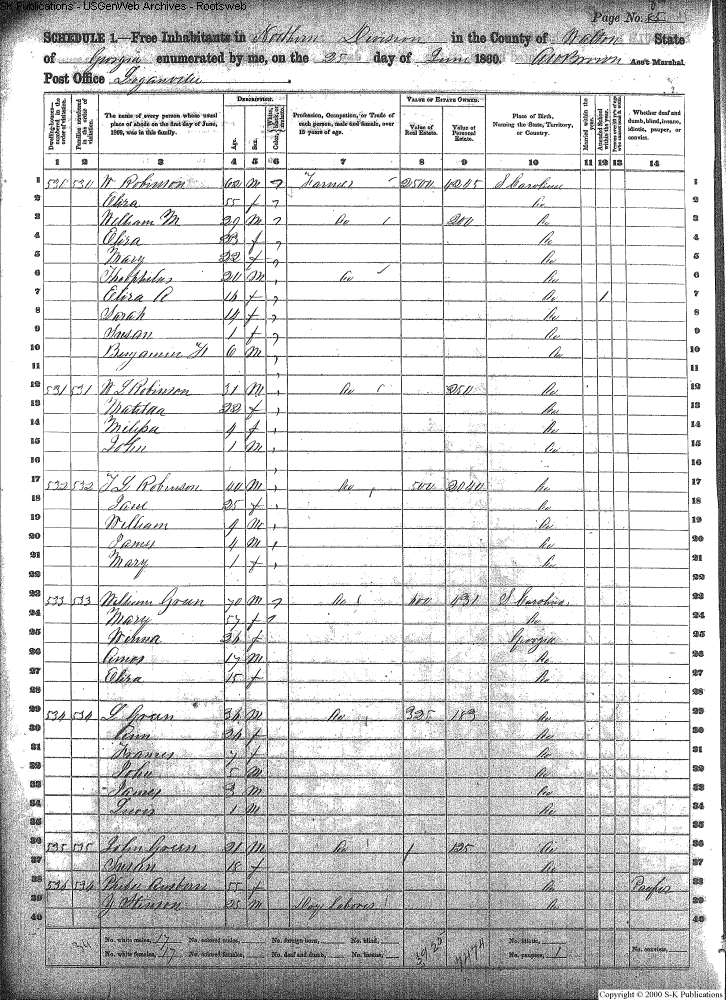 S-K Publications - USGenWeb Archives - Rootsweb
Page No. 85
SCHEDULE 1.—Free Inhabitants in Northern Division in the County of Walton State
of Georgia enumerated by me, on the 25 day of June 1860. Ass't Marshal.
Post Office Loganville.
Dwelling-houses—numbered in the order of visitation. Families numbered in the order of visitation. The name of every person whose usual place of abode on the first day of June, 1860, was in this family. DESCRIPTION. Age. Sex. Color, White, black, or mulatto. Profession, Occupation, or Trade of each person, male and female, over 15 years of age. VALUE OF ESTATE OWNED. Value of Real Estate. Value of Personal Estate. Place of Birth, Naming the State, Territory, or Country. Married within the year. Attended School within the year. Whether deaf and dumb, blind, insane, idiotic, pauper, or convict.
1 2 3 4 5 6 7 8 9 10 11 12 13 14
1 530 530 W Robinson 62 m Farmer 2500 4205 S Carolina 1
2 Eliza 55 f Do 2
3 William M 29 m Do 200 Do 3
4 Eliza 23 f Do 4
5 Mary 22 f Do 5
6 Theophilus 20 m Do Do 6
7 Eliza A 16 f Do 1 7
8 Sarah 14 f Do 8
9 Susan 1 f Do 9
10 Benjamin H 6 m Do 10
11 11
12 531 531 W L Robinson 31 m Do 250 Do 12
13 Matilda 22 f Do 13
14 Milissa 4 f Do 14
15 John 1 m Do 15
16 16
17 532 532 T G Robinson 40 m Do 500 2040 Do 17
18 Jane 25 f Do 18
19 William 9 m Do 19
20 James 4 m Do 20
21 Mary 1 f Do 21
22 22
23 533 533 William Green 70 m Do 400 431 S Carolina 23
24 Mary 57 f Do 24
25 36 f Georgia 25
26 Amos 17 m Do 26
27 Eliza 15 f Do 27
28 28
29 534 534 L Green 36 m Do 325 183 Do 29
30 Ann 26 f Do 30
31 Frances 7 f Do 31
32 John 5 m Do 32
33 James 3 m Do 33
34 1 m Do 34
35 35
36 535 535 John Green 21 m Do 125 Do 36
37 Susan 18 f Do 37
38 55 f Do Pauper 38
39 J Stinson 25 m Day Laborer Do 39
40 40
No. white males, 17 No. colored males, No. foreign born, No. blind, No. idiotic,
No. white females, 17 No. colored females, No. deaf and dumb, No. insane, No. paupers, 1 No. convicts,
34 7474
Copyright © 2000 S-K Publications